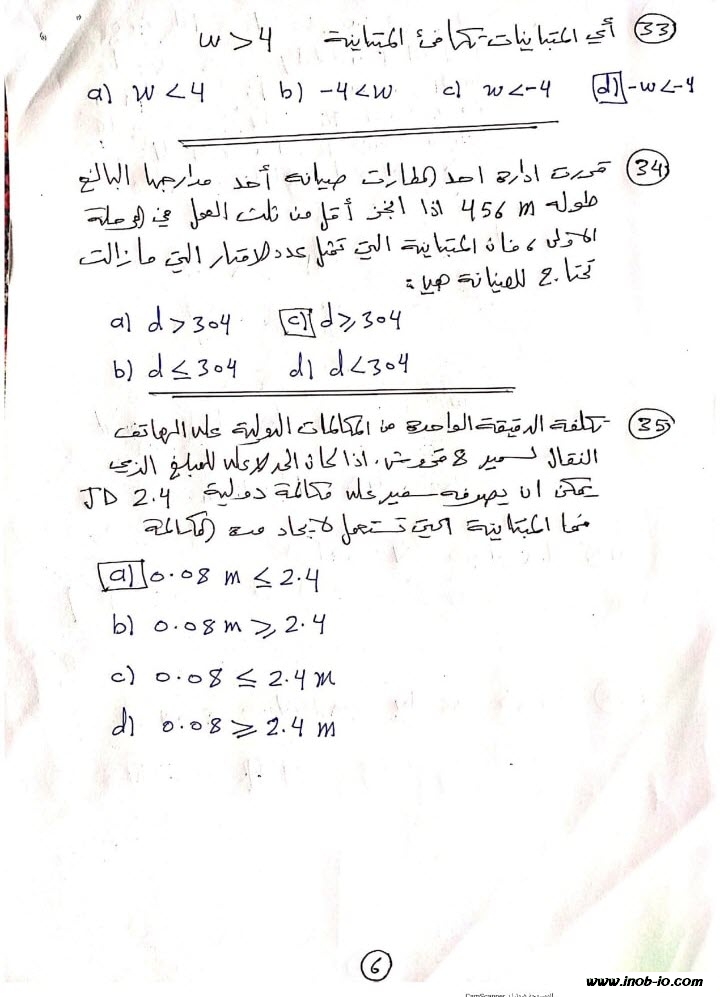 33 أي المتباينات تكافئ المتباينة w > 4
a) w < 4 b) -4 < w c) w < -4 d) -w < -4
34 قررت ادارة احد المطارات صيانة أحد مدارجها البالغ
طوله 456 m اذا انجز أقل من ثلث العمل في المرحلة
الاولى، فان المتباينة التي تمثل عدد الامتار التي مازالت
تحتاج للصيانة هي:
a) d > 304 c) d ≥ 304
b) d ≤ 304 d) d < 304
35 تكلفة الدقيقة الواحدة من المكالمات الدولية على الهاتف
النقال لسمير 8 قروش. اذا كان الحد الاعلى للمبلغ الذي
يمكن ان يصرفه سمير على مكالمة دولية JD 2.4
فما المتباينة التي تستعمل لايجاد مدة المكالمة
a) 0.08 m ≤ 2.4
b) 0.08 m ≥ 2.4
c) 0.08 ≤ 2.4 m
d) 0.08 ≥ 2.4 m
6
www.inob-io.com